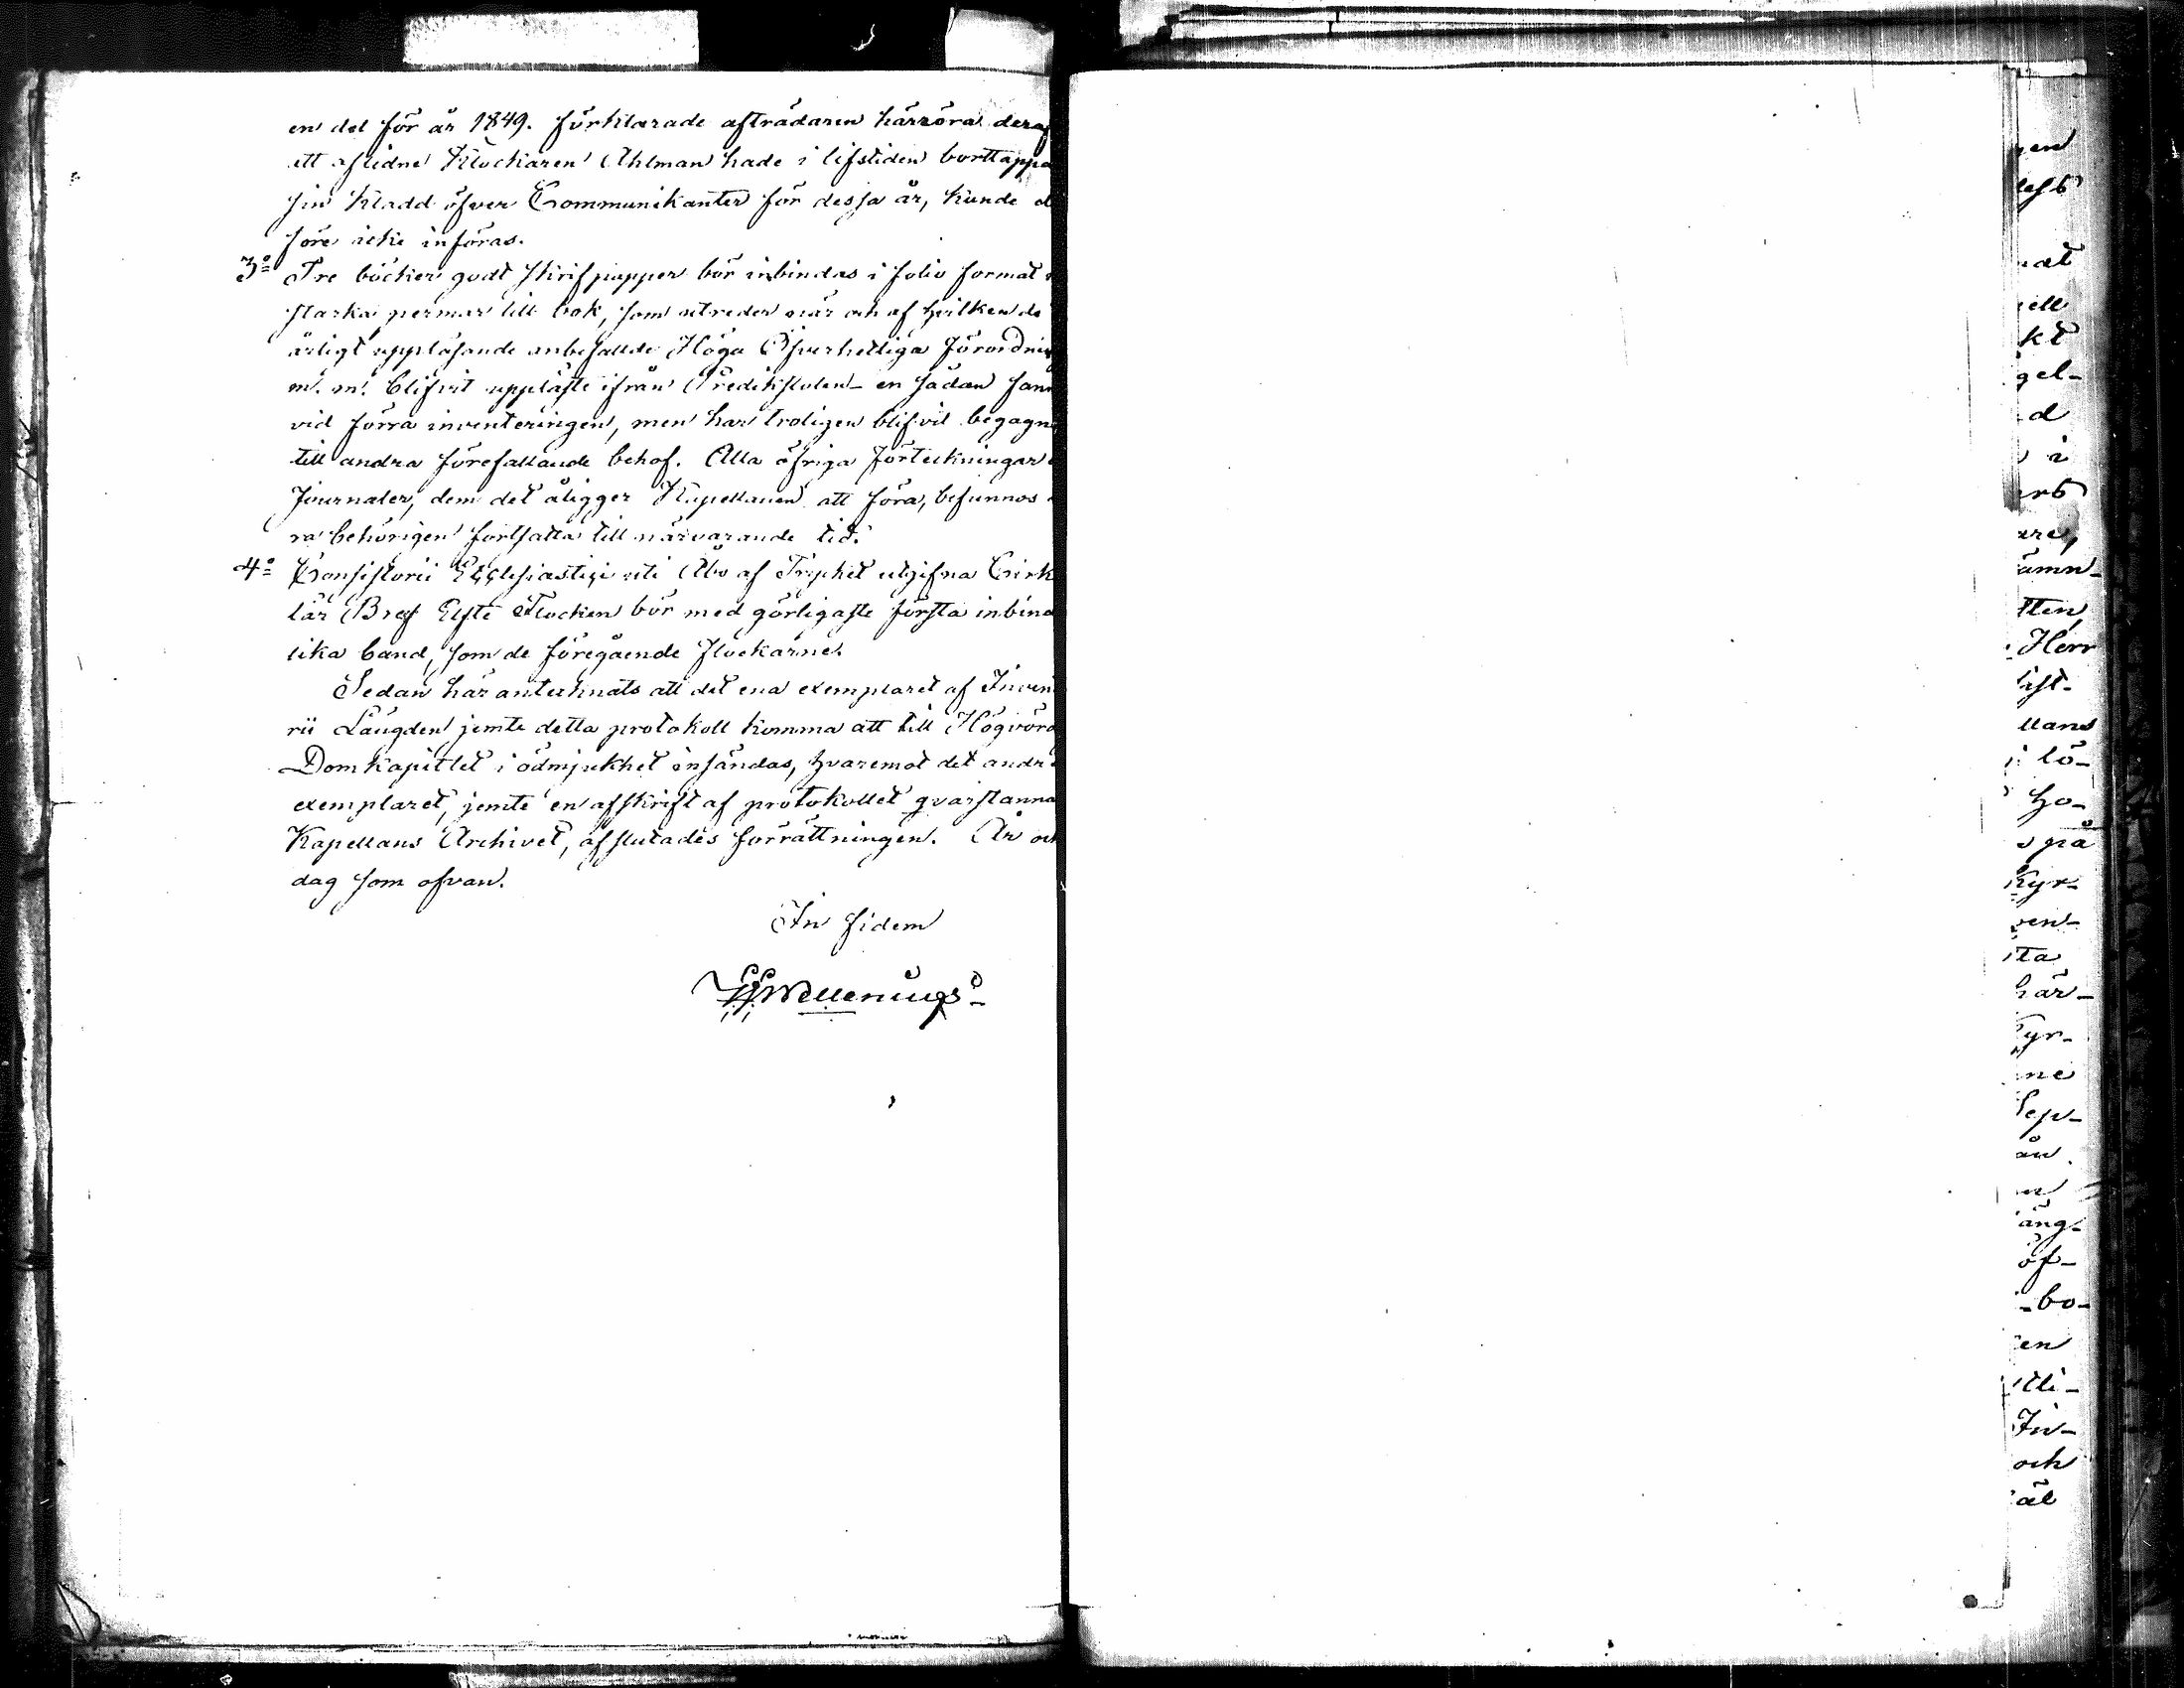 en del för år 1849. förklarade afträdaren härröra deraf
att aflidne Klockaren Ahlman hade i lifstiden borttappa
sin Kladd öfver Communikanter för dessa år, kunde d
före icke införas.
3:o Tre böcker godt skrifpapper bör inbindas i folio format
starka permar till bok, som utreder när och af hvilken de
årligt uppläsande anbefallde Höga Öfverhetliga förordnin
m. m. blifvit uppläste ifrån Predikstolen - en sådan fann
vid förra inventeringen, men har troligen blifvit begagna
till andra förefallande behof. Alla öfriga förteckningar
Journaler, dem det åligger Kapellanen att föra, befunnos
ra behörigen fortsatta till närvarande tid.
4:o Consistorii Ecclesiastici uti Åbo af Trycket utgifna Cirk
lär Bref Elfte Flocken bör med görligaste första inbind
lika band, som de föregående flockarne.
Sedan här antecknats att det ena exemplaret af Inven
rii Längden jemte detta protokoll komma att till Högvörd
Domkapitlet i ödmjukhet insändas, hvaremot det andra
exemplaret, jemte en afskrift af protokollet qvarstanna
Kapellans Archivet, afslutades förrättningen. År och
dag som ofvan.
In fidem
gen
kt
gel-
d
i
ere,
ämn-
tten,
Herr
llans
i lö-
ho-
s på
Kyr-
ven-
ta
här-
Kyr-
ne
Sep-
än
äng-
öf-
- bo-
en
In-
och
äl